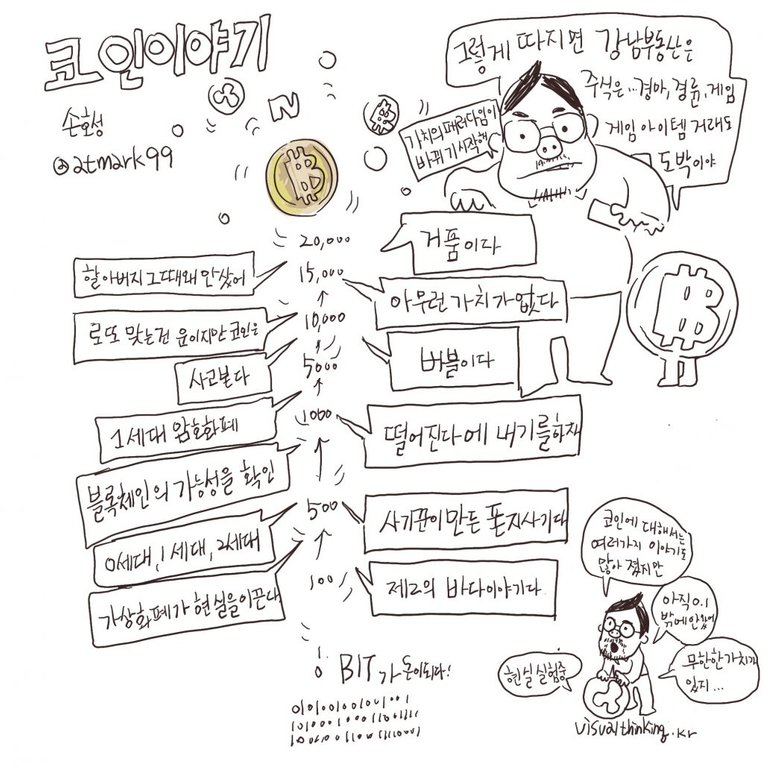 코인이야기
손호성
@atmark99
그렇게 따지면 강남부동산은
주식은...경마,경륜,게임
게임 아이템 거래도
도박이야
가치의 패러다임이
바뀌기 시작해
20,000
거품이다
할아버지 그때 왜 안샀어
15,000
아무런 가치가 없다
로또 맞는건 운이지만 코인은
10,000
버블이다
사고본다
5000
1세대 암호화폐
1000
떨어진다에 내기를하자
블록체인의 가능성을 확인
500
사기꾼이 만든 폰지사기다
0세대,1세대,2세대
100
제2의 바다이야기다
가상화폐가 현실을 이끈다
0 BIT가 돈이되다!
코인에 대해서는
여러가지 이야기도
많아 졌지만
아직 0.1
밖에 안왔어
무한한 가치가
있지...
현실 실험중
visualthinking.kr